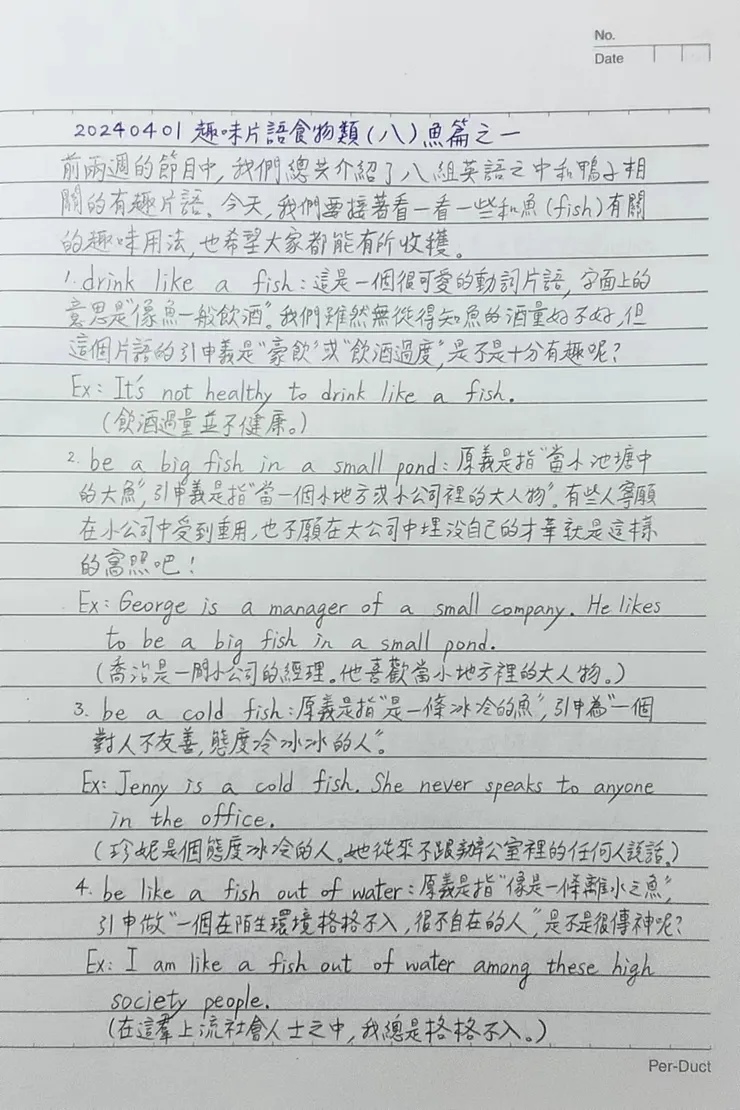 No.
Date
20240401 趣味片語食物類(八)魚篇之一
前兩週的節目中,我們總共介紹了八組英語之中和鴨子相
關的有趣片語。今天,我們要接著看一看一些和魚(fish)有關
的趣味用法,也希望大家都能有所收穫。
1. drink like a fish:這是一個很可愛的動詞片語,字面上的
意思是"像魚一般飲酒"。我們雖然無從得知魚的酒量好不好,但
這個片語的引申義是"豪飲"或"飲酒過度",是不是十分有趣呢?
Ex: It's not healthy to drink like a fish.
(飲酒過量並不健康。)
2. be a big fish in a small pond:原義是指"當小池塘中
的大魚",引申義是指"當一個小地方或小公司裡的大人物"。有些人寧願
在小公司中受到重用,也不願在大公司中埋没自己的才華就是這樣
的寫照吧!
Ex: George is a manager of a small company. He likes
to be a big fish in a small pond.
(喬治是一間小公司的經理。他喜歡當小地方裡的大人物。)
3. be a cold fish:原義是指"是一條冰冷的魚",引申為"一個
對人不友善,態度冷冰冰的人"。
Ex: Jenny is a cold fish. She never speaks to anyone
in the office.
(珍妮是個態度冰冷的人。她從來不跟辦公室裡的任何人説話。)
4. be like a fish out of water:原義是指"像是一條離水之魚",
引申做"一個在陌生環境格格不入,很不自在的人",是不是很傳神呢?
Ex: I am like a fish out of water among these high
society people.
(在這羣上流社會人士之中,我總是格格不入。)
Per-Duct